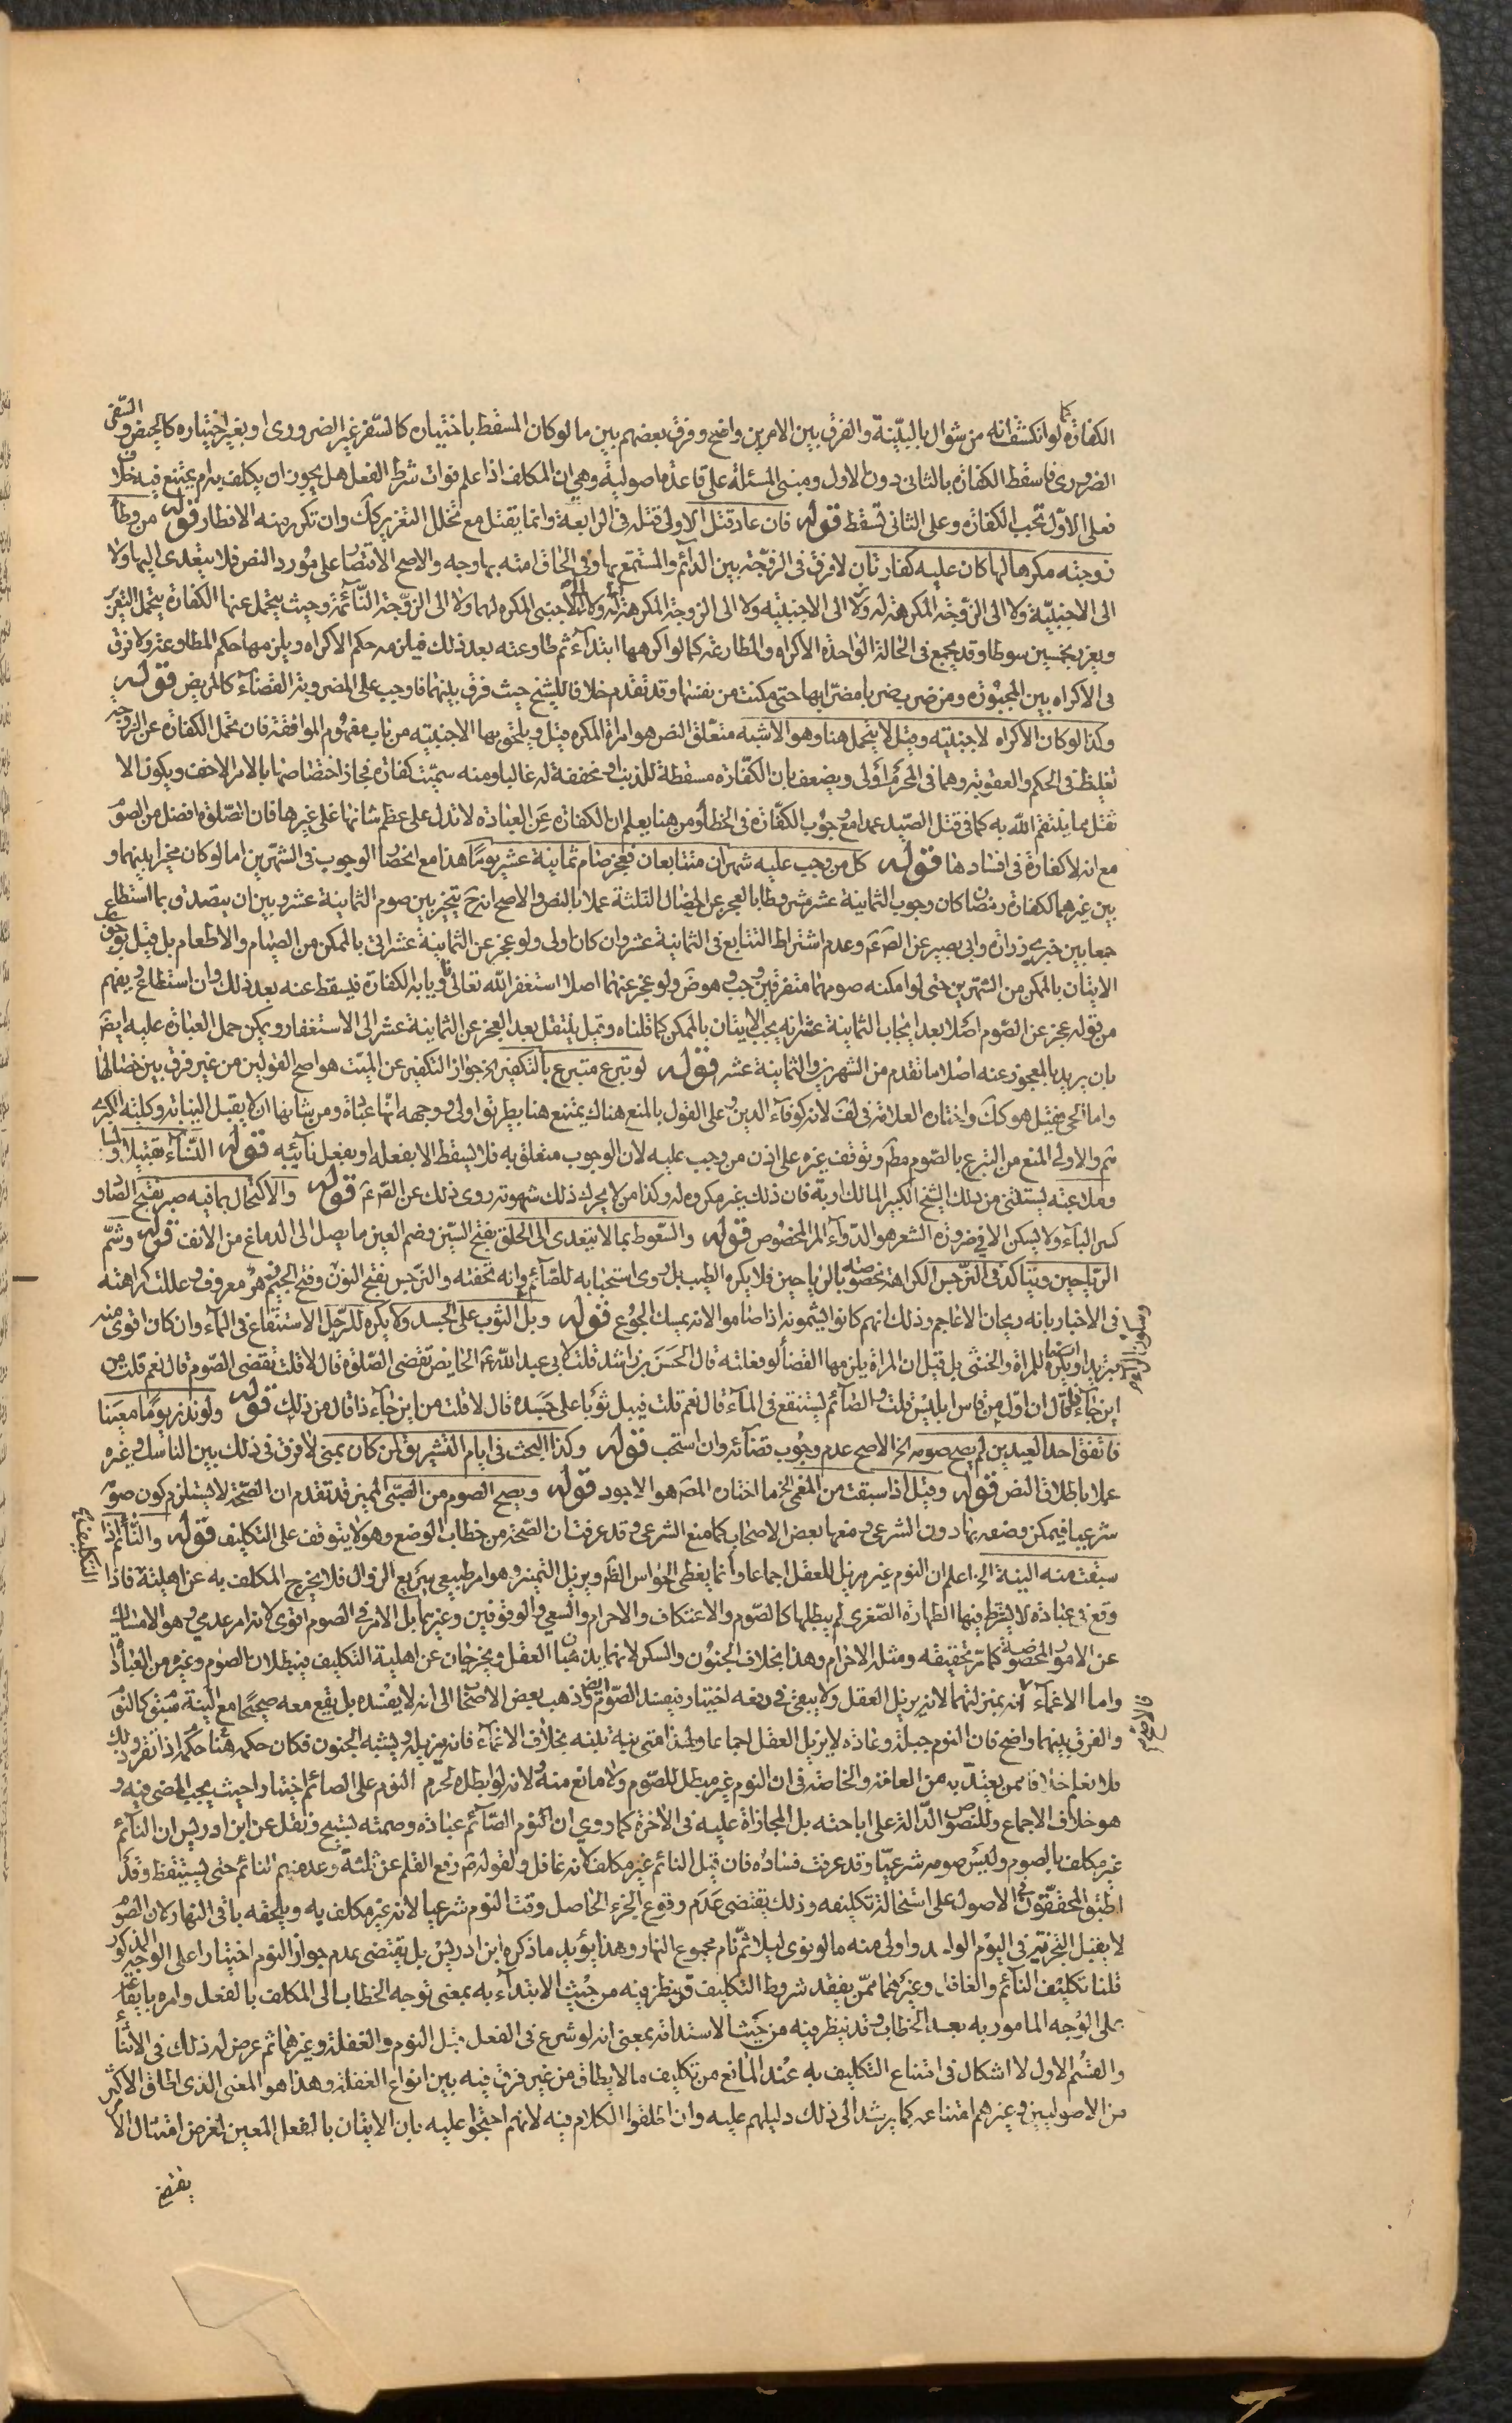 الكفارة كما لو انكشف انه من شوال بالبيّنة والفرق بين الامرين واضح وفرق بعضهم بين ما لو كان المسقط باختياره كالسّفر غير الضروری او بغير اختياره كالحيض والسّفر
الضروری فاسقط الكفارة بالثانی دون الاول ومبنی المسئلة علی قاعدة اصولية وهی ان المكلف اذا علم فوات شرط الفعل هل يجوز ان يكلف به ام يمتنع فيه خلاف
فعلی الاوّل تجب الكفارة وعلی الثانی تسقط قوله فان عاد قتل الاولی قتله فی الرابعة وانما يقتل مع تخلل التغزير كك وان تكرر منه الافطار قوله من وطأ
زوجته مكرها لها كان عليه كفارتان لا فرق فی الزوجة بين الدائم والمستمتع بها وفی الحاق امته بها وجه والاصح الاقتصار علی مورد النص فلا يتعدی اليها ولا
الی الاجنبيّة ولا الی الزوجة المكرهة له ولا الی الاجنبية ولا الی الزوجة المكرهة له ولا الی الاجنبی المكره لهما ولا الی الزوجة النّائمة وحيث يتحمل عنها الكفارة يتحمل التعزير
ويعزر بخمسين سوطا وقد يجمع فی الحالة الواحدة الاكراه والمطاوعة كما لو اكرهها ابتدآء ثم طاوعته بعد ذلك فيلزمه حكم الاكراه ويلزمها حكم المطاوعة ولا فرق
فی الاكراه بين المجبورة ومن ضربت ضربا مضرّا بها حتی مكنت من نفسها وقد تقدم خلاف الشيخ حيث فرق بينهما فاوجب علی المضروبة القضآء كالمريض قوله
وكذا لو كان الاكراه لاجنبية وقيل لا يتحمل هنا وهو الاشبه متعلق النص هو امرأة المكره قيل ويلحق بها الاجنبية من باب مفهوم الموافقة فان تحمل الكفارة عن الزوجة
تغليظ فی الحكم والعقوبة وهما فی المحرم اولی ويضعف بان الكفّارة مسقطة للذنب او مخففة له غالبا ومنه سميّت كفارة فجاز اختصاصها بالامر الاخف ويكون الا
ثقل مما ينتقم الله به كما فی قتل الصّيد عمدا مع وجوب الكفّارة فی الخطأ ومن هنا يعلم ان الكفارة عن العبادة لا تدل علی عظم شانها علی غيرها فان الصّلوة افضل من الصّوم
مع انه لا كفارة فی افسادها قوله كل من وجب عليه شهران متتابعان فعجز صام ثمانية عشر يومًا هذا مع انحصار الوجوب فی الشهرين اما لو كان مخيرا بينهما و
بين غيرهما ككفارة رمضان كان وجوب الثمانية عشر مشروطا بالعجز عن الخصال الثلثة عملا بالنص والاصح انه ح يتخير بين صوم الثمانية عشر وبين ان يتصدق بما استطاع
جمعا بين خبری زرارة وابی بصير عن الصّ عم وعدم اشتراط التتابع فی الثمانية عشر وان كان اولی ولو عجز عن الثمانية عشر اتی بالممكن من الصيام والاطعام بل قيل بوجوب
الاتيان بالممكن من الشهرين حتی لو امكنه صومهما متفرقين وجب وهو ض ولو عجز عنهما اصلا استغفر الله تعالی ناويا به الكفارة فيسقط عنه بعد ذلك وان استطاع ويفهم
من قوله عجز عن الصّوم اصلا بعد ايجاب الثمانية عشر انه يجب الاتيان بالممكن كما قلناه وقيل ينتقل بعد العجز عن الثمانية عشر الی الاستغفار ويمكن حمل العبارة عليه ايضً
بان يريد بالمعجوز عنه اصلا ما تقدم من الشهرين والثمانية عشر قوله لو تبرع متبرع بالتكفير الخ جواز التكفير عن الميّت هو اصح القولين من غير فرق بين خصالها
واما الحی فقيل هو كك واختاره العلامة فی لف لانه كوفآء الدين وعلی القول بالمنع هناك يمتنع هنا بطريق اولی ووجهه انها عبادة ومن شانها ان لا يقبل النيابة وكلية الكبری
ثم والاولی المنع من التبرع بالصّوم مطً وتوقف غيره علی اذن من وجب عليه لان الوجوب متعلق به فلا يسقط الا بفعله او بفعل نآئبه قوله النّسآء تقبيلا ولمسا
وملاعبة يستثنی من ذلك الشيخ الكبير المالك اربه فان ذلك غير مكروه له وكذا من لا يحرك ذلك شهوته روی ذلك عن الصّ عم قوله والاكتحال بما فيه صبر بفتح الصّاد و
كسر البآء ولا يسكن الا فی ضرورة الشعر هو الدّوآء المر المخصوص قوله والسّعوط بما لا يتعدی الی الحلق بفتح السّين وضم العين ما يصل الی الدماغ من الانف قوله وشمّ
الرّياحين ويتاكد فی النّرجس الكراهة مخصوصة بالرياحين فلا يكره الطيب بل روی استحبابه للصّآئم وانه تحفته والنرجس بفتح النون وفتح الجيم هو معروف وعللت كراهته
فی الاخبار بانه ريحان الاعاجم وذلك انهم كانوا يشمونه اذا صاموا لانه يمسك الجوع قوله وبلّ الثوب علی الجسد ولا يكره للرّجل الاستنقاع فی المآء وان كان اقوی منه
تبريدا ويكره للمرأة والخنثی بل قيل ان المرأة يلزمها القضأ لو فعلته قال الحسن بن راشد قلت لابی عبد الله عم الحايض تقضی الصّلوة قال لا قلت تقضی الصّوم قال نعم قلت من
اين جآء ذا قال ان اوّل من قاس ابليس قلت والصّآئم يستنقع فی المآء قال نعم قلت فيبل ثوبًا علی جسده قال لا قلت من اين جآء ذا قال من ذلك قوله ولو نذر يومًا معينا
فاتفق احد العيدين لم يصح صومه الخ الاصح عدم وجوب قضآئه وان استحب قوله وكذا البحث فی ايام التشريق لمن كان بمنی لا فرق فی ذلك بين الناسك وغيره
عملا باطلاق النص قوله وقيل اذا سبقت من المغمی الخ ما اختاره المصً هو الاجود قوله ويصح الصوم من الصّبی المميز قد تقدم ان الصّحة لا يستلزم كون صومه
شرعيا فيمكن وصفه بها دون الشرعی ومنعها بعض الاصحاب كما منع الشرعی وقد عرفت ان الصّحة من خطاب الوضع وهو لا يتوقف علی التكليف قوله والنّآئم اذا
سبقت منه النية الخ اعلم ان النوم غير مزيل للعقل اجماعا وانما يغطی الحواس الظً ويزيل التميز وهو امر طبيعی سريع الزوال فلا يخرج المكلف به عن اهلية التكليف فاذا
وقع فی عبادة لا يشترط فيها الطهارة الصّغری لم يبطلها كالصّوم والاعتكاف والاحرام والسعی والوقوفين وغيرها بل الامر فی الصوم اقوی لانه امر عدمی وهو الامساك
عن الامور المخصوصة كما مرّ تحقيقه ومثله الاحرام وهذا بخلاف الجنون والسكر لانهما يذهبان العقل ويخرجان عن اهلية التكليف فيبطلان الصوم وغيره من العبادات
واما الاغمآء فالاصح انه بمنزلتهما لانه يزيل العقل ولا يبقی فی دفعه اختيار فيفسد الصّوم ايضً وذهب بعض الاصحاب الی انه لا يفسده بل يقع معه صحيحًا مع سبق النية كالنوم
والفرق بينهما واضح فان النوم جبلة وعادة لا يزيل العقل اجماعا ولهذا متی نبه تنبه بخلاف الاغمآء فانه يزيله ويشبه الجنون فكان حكمه هنا حكمه اذا تقرر ذلك
فلا نعلم خلافا ممن يعتدّ به من العامة والخاصة فی ان النوم غير مبطل للصّوم ولا مانع منه ولانه لو ابطله لحرم النوم علی الصائم اختيارا حيث يجب المضی فيه و
هو خلاف الاجماع وللنصوص الدّالة علی اباحته بل المجازاة عليه فی الاخرة كما روی ان النوم الصّآئم عبادة وصمته تسبيح ونقل عن ابن ادريس ان النآئم
غير مكلف بالصوم وليس صومه شرعيّا وقد عرفت فساده فان قيل النائم غير مكلف لانه غافل ولقوله صً رفع القلم عن ثلثة وعدّ منهم النائم حتی يستيقظ وقد
اطبق المحققون فی الاصول علی استحالة تكليفه وذلك يقتضی عدم وقوع الجزء الحاصل وقت النوم شرعيا لانه غير مكلف به ويلحقه باقی النهار لان الصوم
لا يقبل التجزية فی اليوم الواحد واولی منه ما لو نوی ليلا ثمّ نام مجموع النهار وهذا يؤيد ما ذكره ابن ادريس بل يقتضی عدم جواز النوم اختيارا علی الوجه المذكور
قلنا تكليف النآئم والغافل وغيرهما ممّن يفقد شروط التكليف قد ينظر فيه من حيث الابتدآء به بمعنی توجه الخطاب الی المكلف بالفعل وامره بايقاعه
علی الوجه المامور به بعد الخطاب وقد ينظر فيه من حيث الاستدامة بمعنی انه لو شرع فی الفعل قبل النوم والغفلة وغيرهما ثم عرض له ذلك فی الاثنآء
والقسم الاول لا اشكال فی امتناع التكليف به عند المانع من تكليف ما لا يطاق من غير فرق فيه بين انواع الغفلة وهذا هو المعنی الذی اطلق الاكثر
من الاصوليين وغيرهم امتناعه كما يرشد الی ذلك دليلهم عليه وان اطلقوا الكلام فيه لانهم احتجوا عليه بان الاتيان بالفعل المعين لغرض امتثال الامر
يقتضی